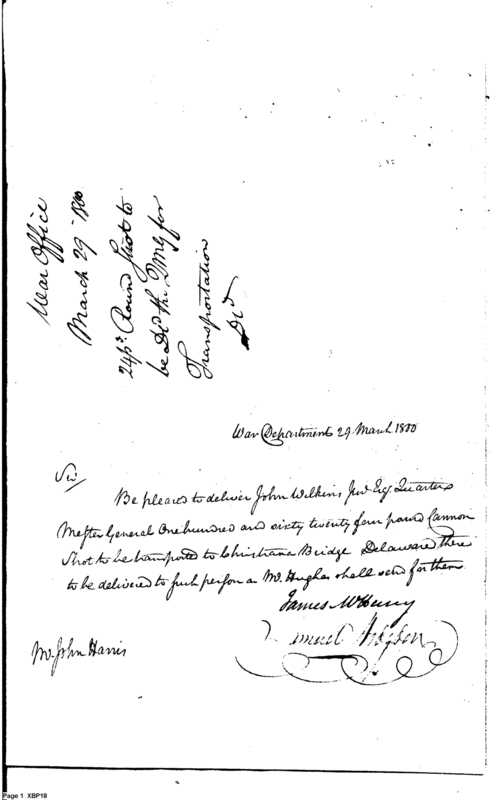 War Office
March 29 1800
24pr. Round Shot to
be Dd. the QMG for
Transportation
Dd.
War Department 29 March 1800
Sir/
Be pleased to deliver John Wilkins, Junr. Esq. Quarter
Master General One hundred and sixty twenty four pound Cannon
Shot to be transported to Christiana Bridge Delaware there
to be delivered to such person as Mr. Hughes shall send for them
James McHenry
Samuel Hodgson
Mr. John Harris
Page 1 XBP18